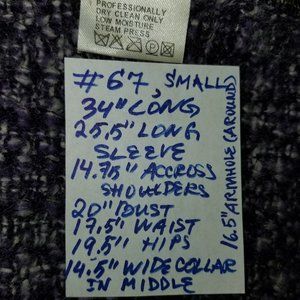 PROFESSIONALLY
DRY CLEAN ONLY
LOW MOISTURE
STEAM PRESS
#67, SMALL
34" LONG
25.5" LONG
SLEEVE
14.75" ACCROSS
SHOULDERS
20" BUST
17.5" WAIST
19.5" HIPS
14.5" WIDE COLLAR
IN MIDDLE
16.5" ARMHOLE (AROUND)